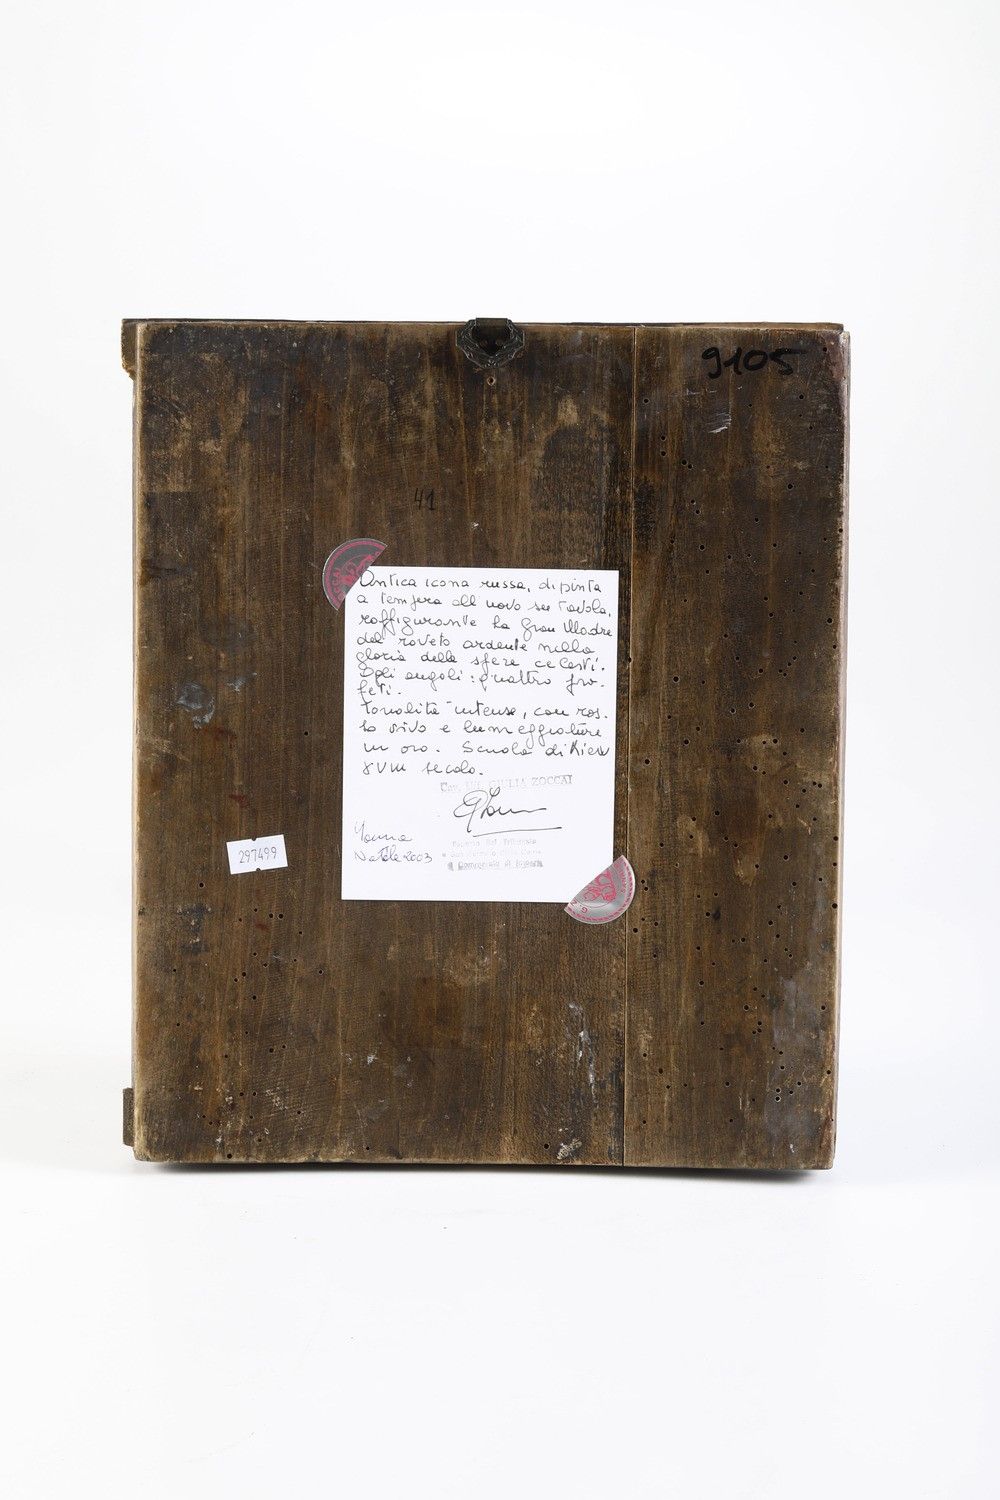 9105
41
Antica icona russa, dipinta
a tempera all'uovo su tavola,
raffigurante la Gran Madre
del roveto ardente nella
gloria delle sfere celesti.
Agli angoli: quattro pro-
feti.
Tonalità intense, con ros-
so vivo e lumeggiature
in oro. Scuola di Kiev
XVIII secolo.
GIULIA ZOCCAI
Natale 2003
297499